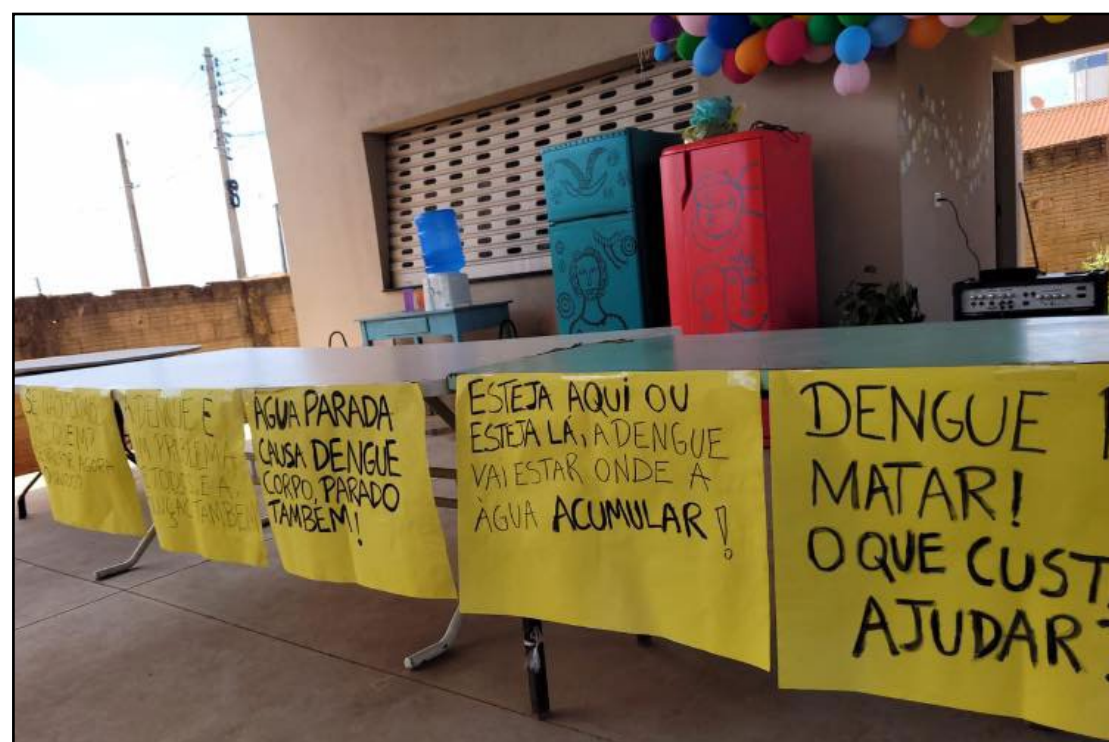 SE
AGORA
A DENGUE É
UM PROBLEMA
TAMBÉM
ÁGUA PARADA
CAUSA DENGUE
CORPO, PARADO
TAMBÉM!
ESTEJA AQUI OU
ESTEJA LÁ, A DENGUE
VAI ESTAR ONDE A
ÀGUA ACUMULAR!
DENGUE
MATAR!
O QUE CUSTA
AJUDAR?